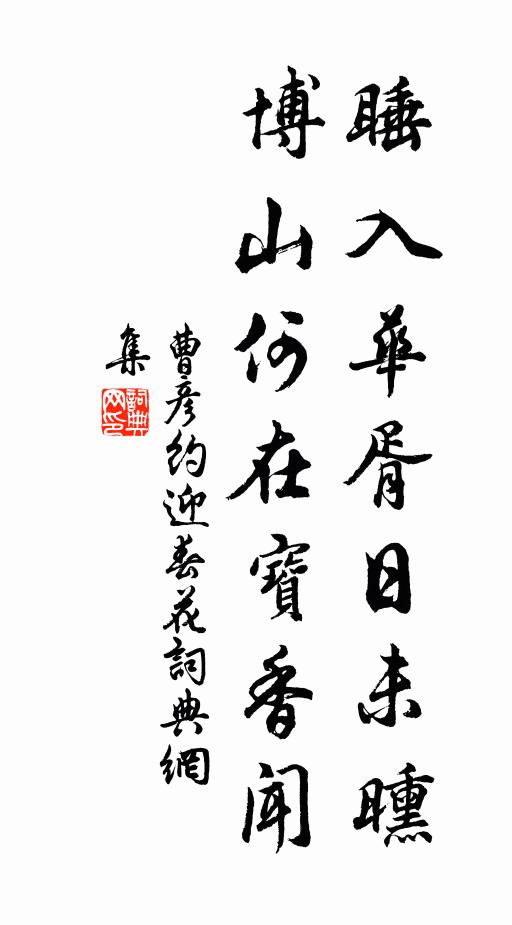 睡入華胥日未曛
博山何在寶香聞
曹彥約迎春花詞典網
集
詞典
網印